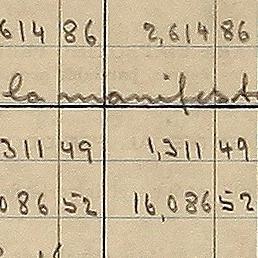 614 86 2,614 86
la manifest
311 49 1,311 49
086 52 16,086 52